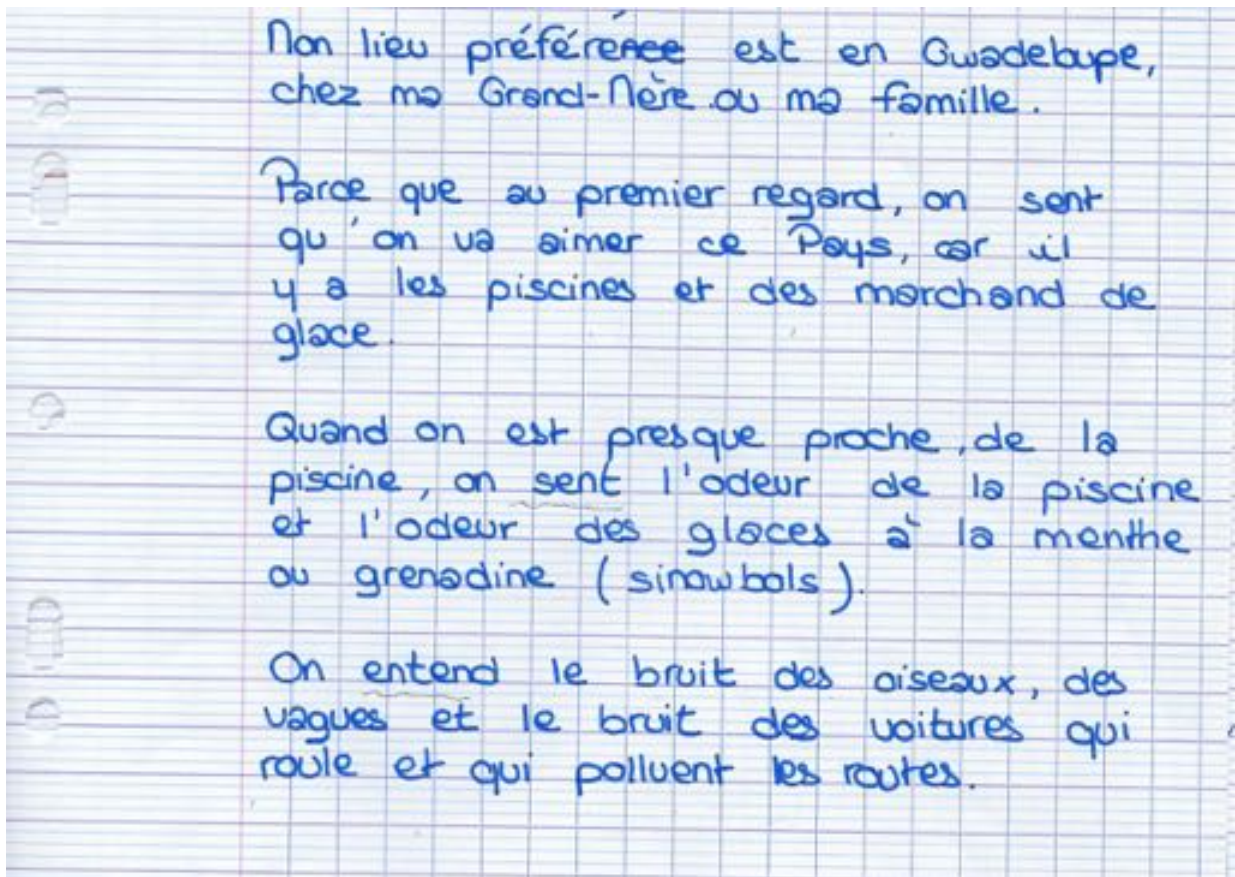 Mon lieu préférence est en Guadeloupe,
chez ma Grand-Mère ou ma famille.
Parce que au premier regard, on sent
qu'on va aimer ce Pays, car il
y a les piscines et des marchand de
glace.
Quand on est presque proche, de la
piscine, on sent l'odeur de la piscine
et l'odeur des glaces à la menthe
ou grenadine (sinowbols).
On entend le bruit des oiseaux, des
vagues et le bruit des voitures qui
roule et qui polluent les routes.